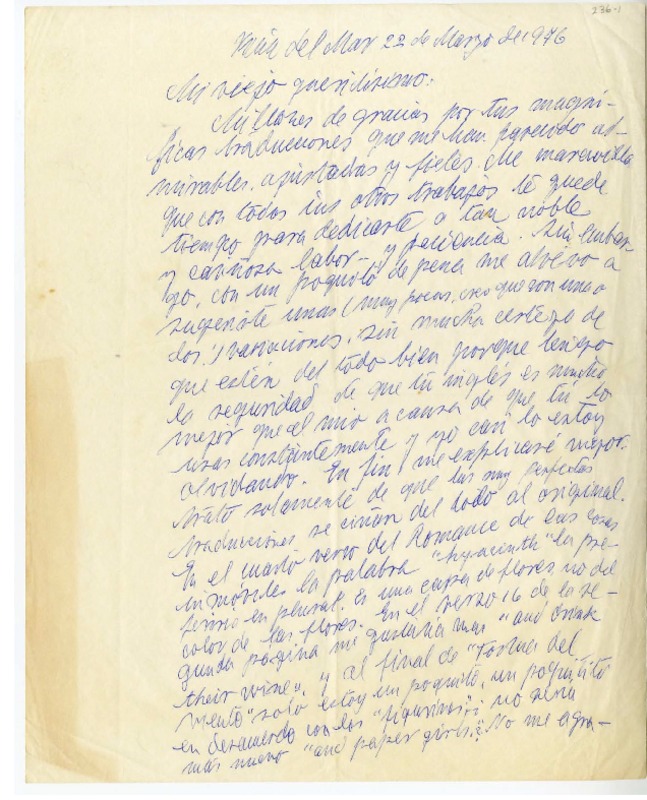 236-1
Viña del Mar 22 de Marzo de 1976
Mi viejo queridísimo:
Millones de gracias por tus magní-
ficas traducciones que me han parecido ad-
mirables, ajustadas y fieles. Me maravilla
que con todos tus otros trabajos te quede
tiempo para dedicarte a tan noble
y cariñosa labor y paciencia. Sin embar-
go, con un poquito de pena me atrevo a
sugerirte unas (muy pocas, creo que son una o
dos!) variaciones, sin mucha certeza de
que estén del todo bien porque tengo
la seguridad de que tu inglés es mucho
mejor que el mío a causa de que tú lo
usas constantemente y yo casi lo estoy
olvidando. En fin, me explicaré mejor.
Trato solamente de que las muy perfectas
traducciones se ciñan del todo al original.
En el cuarto verso del Romance de las cosas
inmóviles la palabra "hyacinth" la pre-
fiero en plural. Es una de flores, no del
color de las flores. En el verso 16 de la se-
gunda página me gustaría mas "and drink
their wine", y al final de del
solo estoy un poquito, un poquitito
en desacuerdo con los "figurines"; no sería
más nuevo "and paper girls"? No me agra-